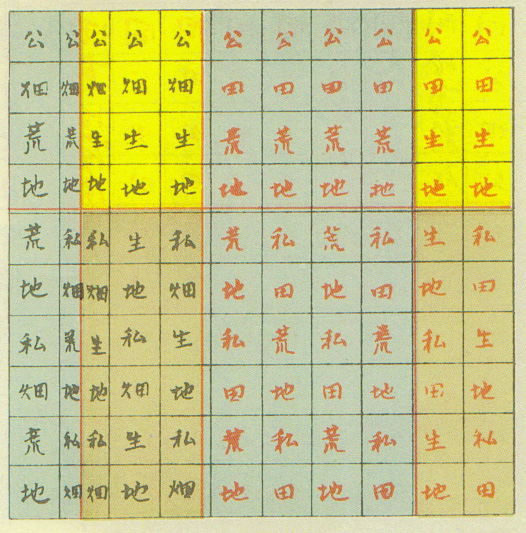 公 公 公 公 公 公 公 公 公 公 公
畑 畑 畑 畑 畑 田 田 田 田 田 田
荒 荒 生 生 生 荒 荒 荒 荒 生 生
地 地 地 地 地 地 地 地 地 地 地
荒 私 私 生 私 荒 私 荒 私 生 私
地 畑 畑 地 畑 地 田 地 田 地 田
私 荒 生 私 生 私 荒 私 荒 私 生
畑 地 地 畑 地 田 地 田 地 田 地
荒 私 私 生 私 荒 私 荒 私 生 私
地 畑 畑 地 畑 地 田 地 田 地 田